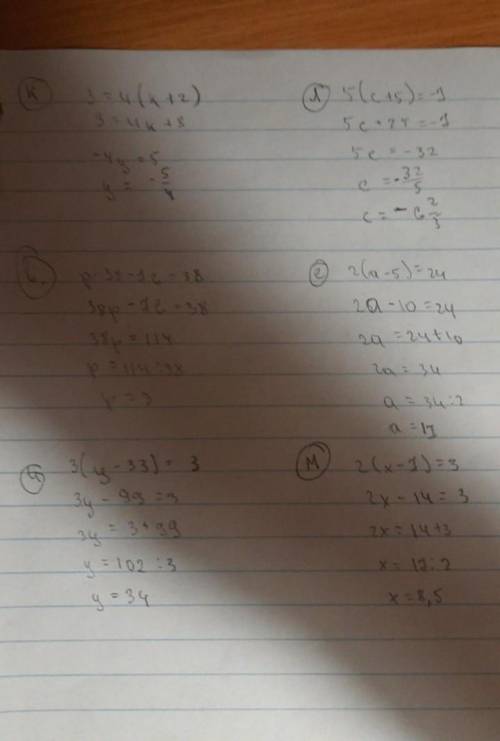 К
3=4(x+2)
3=4x+8
-4y=5
y=-5/4
Л
5(c+5)=-7
5c+25=-7
5c=-32
c=-32/5
c=-6 2/5
p·38-76=38
38p-76=38
38p=114
p=114:38
p=3
2
2(a-5)=24
2a-10=24
2a=24+10
2a=34
a=34:2
a=17
3(y-33)=3
3y-99=3
3y=3+99
y=102:3
y=34
М
2(x-7)=3
2x-14=3
2x=14+3
x=17:2
x=8,5